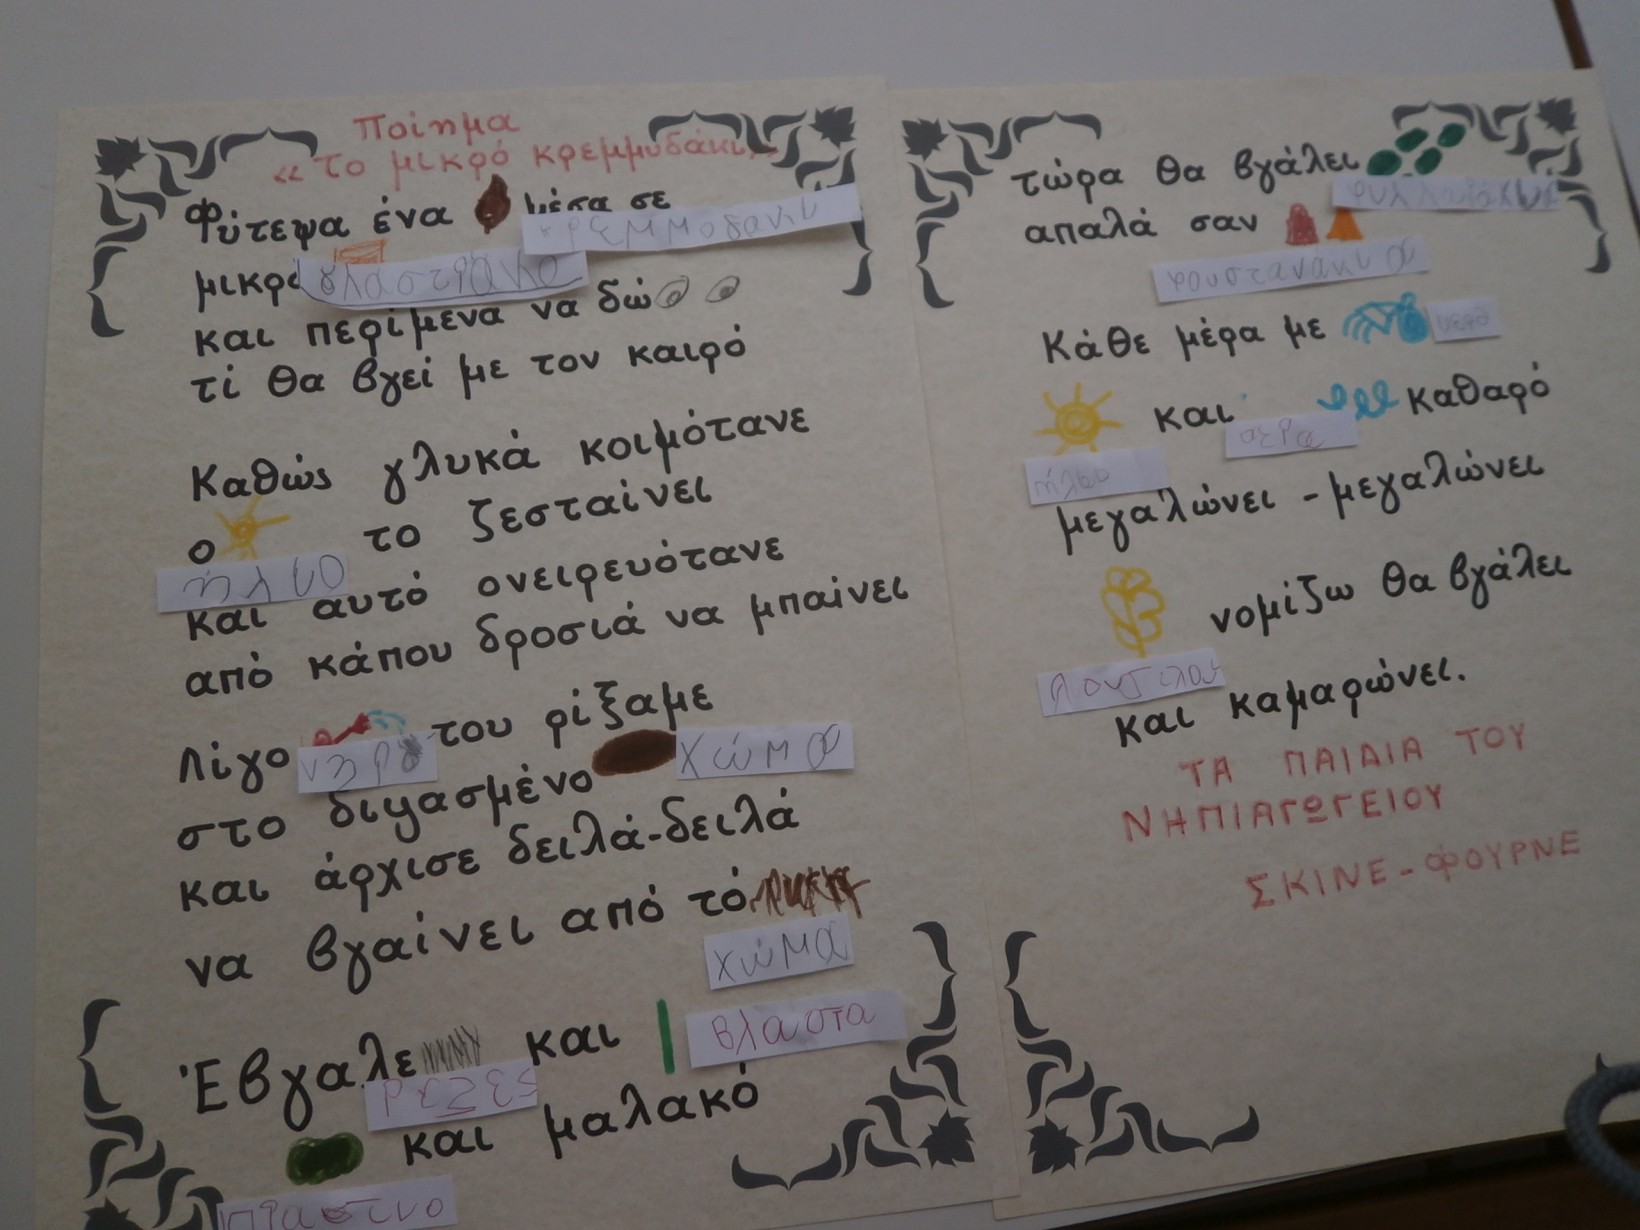 Ποίημα
«το μικρό κρεμμυδάκι»
Φύτεψα ένα μέσα σε
μικρό γλαστράκι
και περίμενα να δώ
τί θα βγεί με τον καιρό
Καθώς γλυκά κοιμότανε
ο το ζεσταίνει
ήλιο
και αυτό ονειρευότανε
από κάπου δροσιά να μπαίνει
Λίγο νερό του ρίξαμε
στο διψασμένο χώμα
και άρχισε δειλά-δειλά
να βγαίνει από τό
χώμα
Έβγαλε και βλαστα
ρεζες
και μαλακό
πρασινο
τώρα θα βγάλει
απαλά σαν
φουστανακια
Κάθε μέρα με νερο
και καθαρό
αερα
ήλιο
μεγαλώνει - μεγαλώνει
νομίζω θα βγάλει
και καμαρώνει.
ΤΑ ΠΑΙΔΙΑ ΤΟΥ
ΝΗΠΙΑΓΩΓΕΙΟΥ
ΣΚΙΝΕ-ΦΟΥΡΝΕ